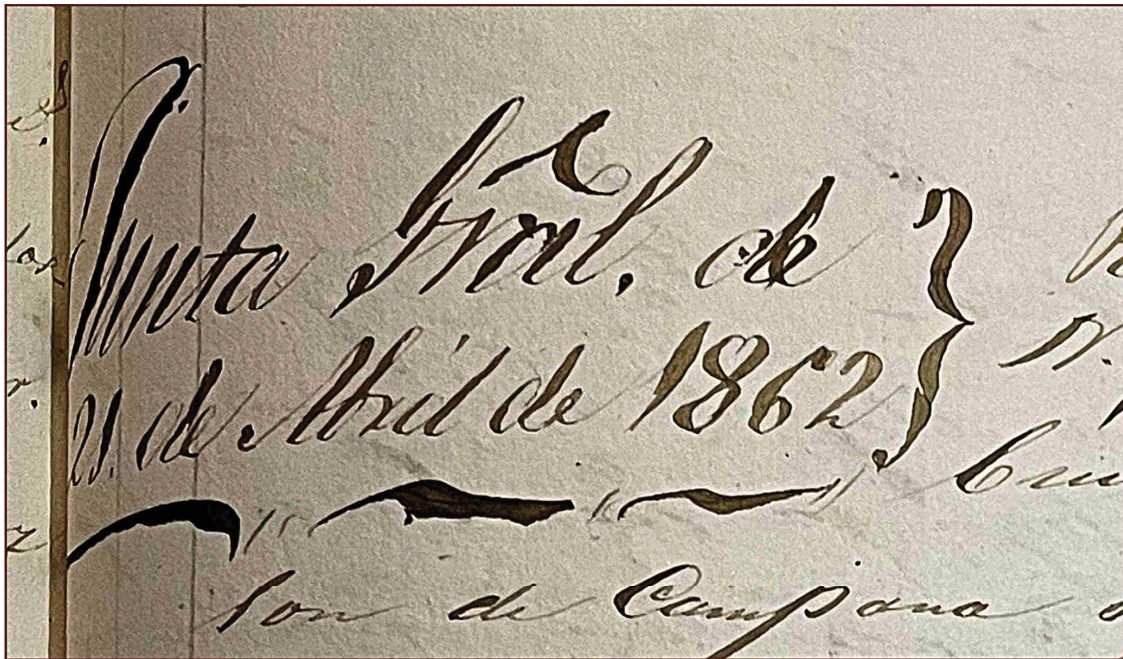 Junta Gral. de
21. de Abril de 1862
son de Campana